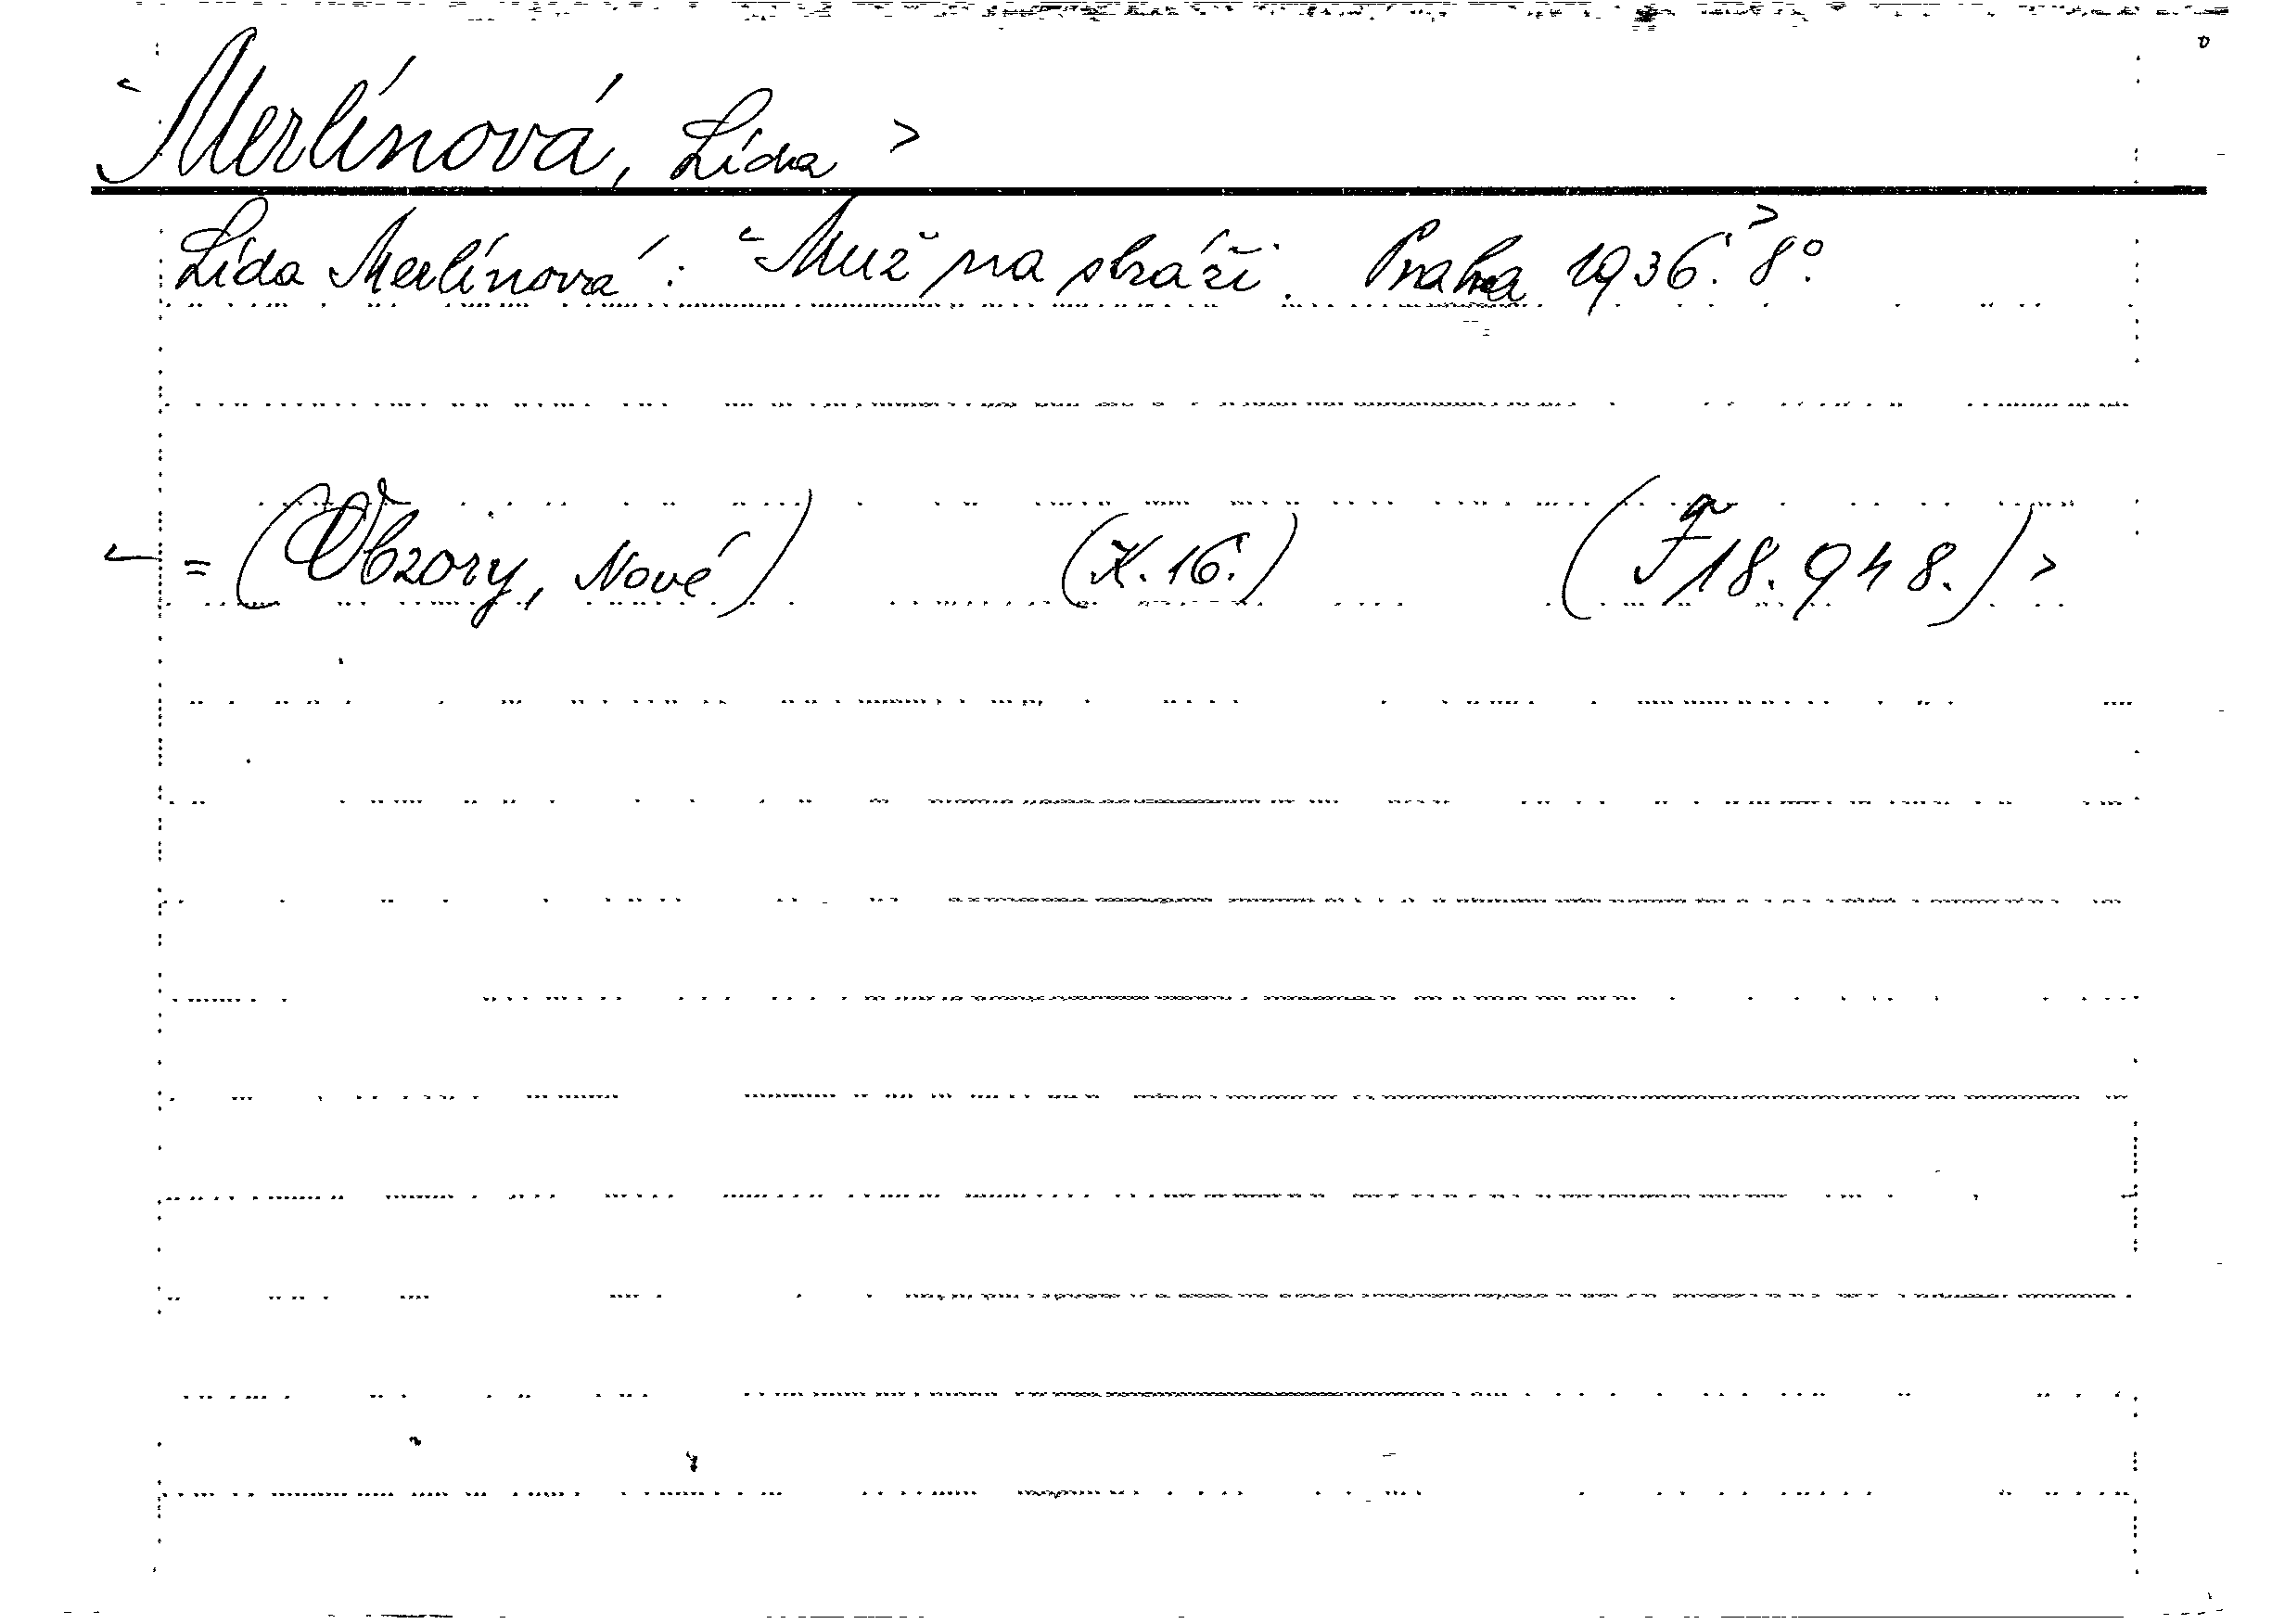 <Merlínová, Lída>
Lída Merlínová: <Muž na stráži. Praha 1936.> 8°.
<= (Obzory, Nové) (K. 16.) (F 18.948.)>